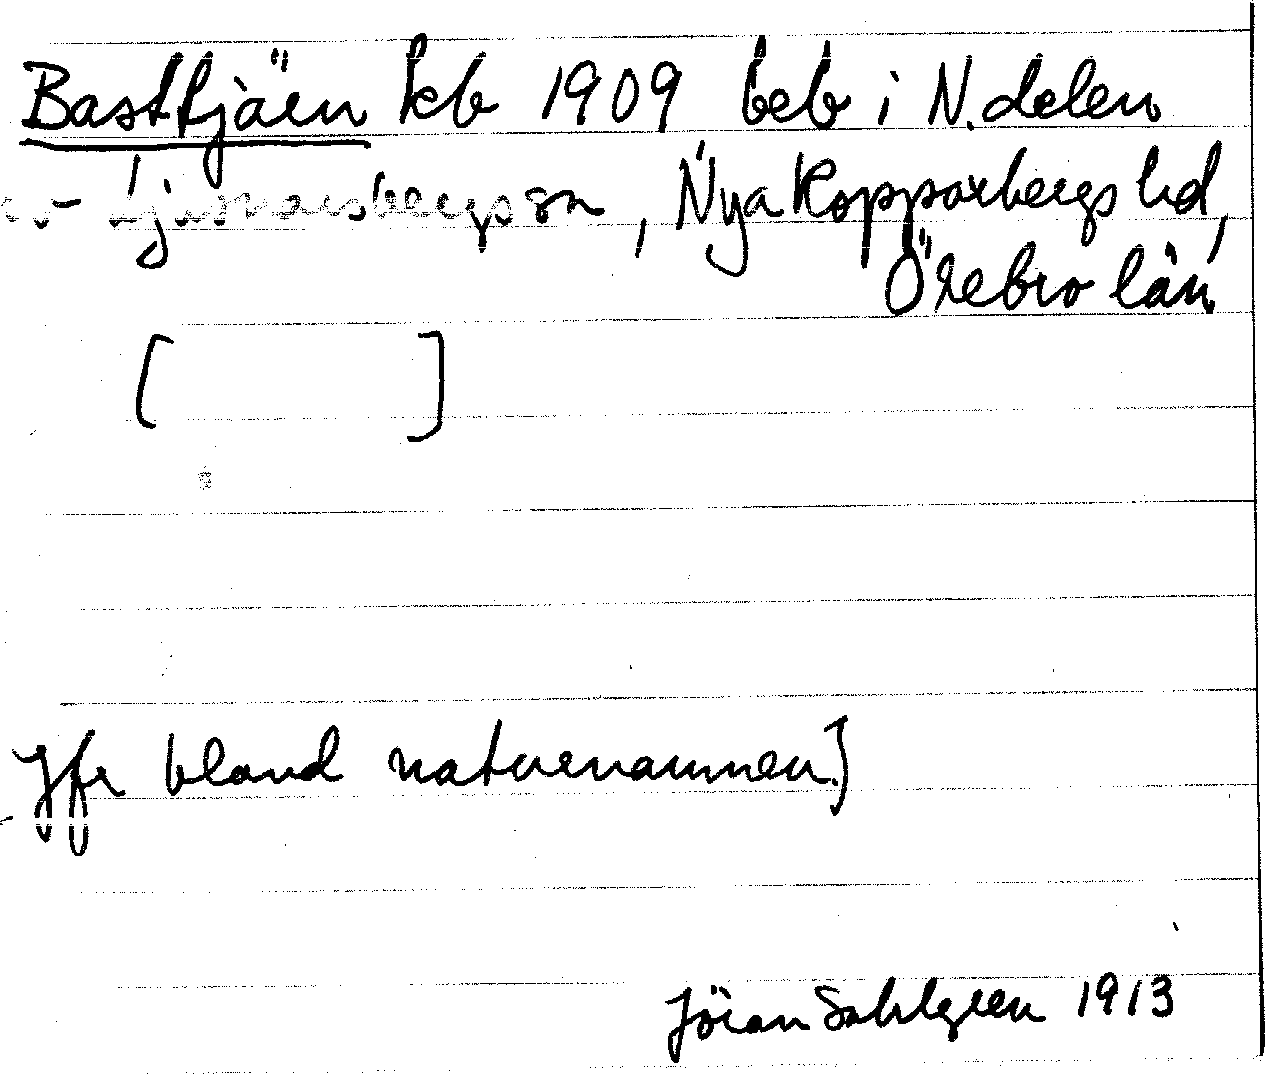 Basttjäen kb 1909 beb i N. delen
av Ljusnarsbergs sn, Nya Kopparbergs hd,
Örebro län
[ ]
Jfr bland naturnamnen]
Jöran Sahlgren 1913